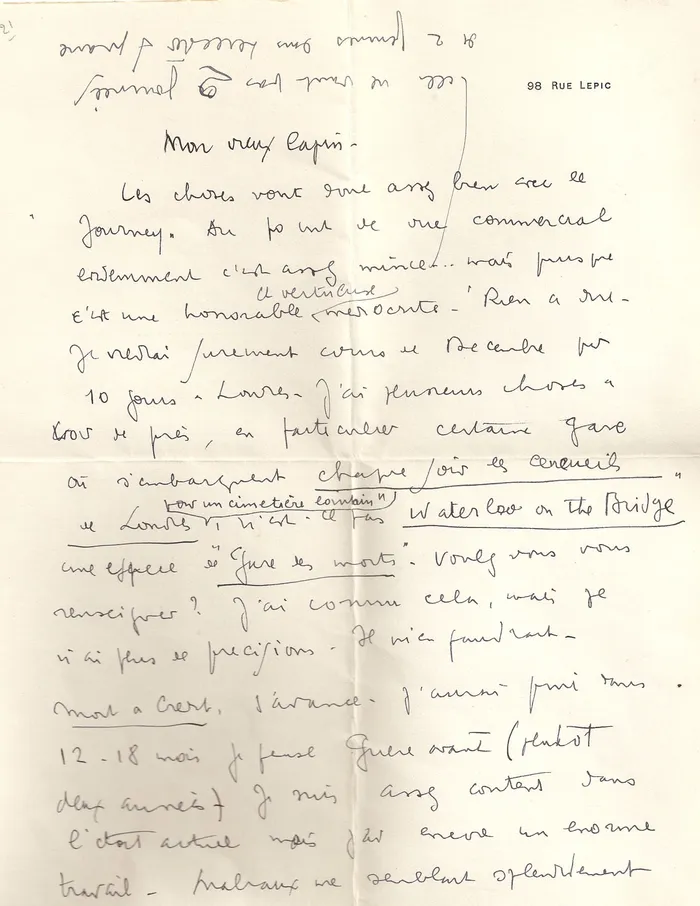 98 RUE LEPIC
ne vaut pas 2
et 2
Mon vieux lapin -
Les choses vont donc assez bien avec le
Journey. Au point de vue commercial
evidemment c'est assez mince... mais puisque
et vertueuse
c'est une honorable mediocrité - Rien à dire -
Je viendrai surement courant Decembre pour
10 jours à Londres - J'ai plusieurs choses à
voir de près, en particulier certaine gare
où s'embarquent chaque soir les cercueils
pour un cimetière lointain"
de Londres n'est-ce pas Waterloo on the Bridge"
une espèce de "Gare des morts". Voulez vous vous
renseigner ? J'ai connu cela, mais je
n'ai plus de precisions. Il m'en faudrait -
Mort à Credit. s'avance. J'aurai fini dans
12 - 18 mois je pense Guère avant (plutôt
deux années) Je suis assez content dans
l'état actuel mais j'ai encore un enorme
travail - Malraux me semblant splendidement